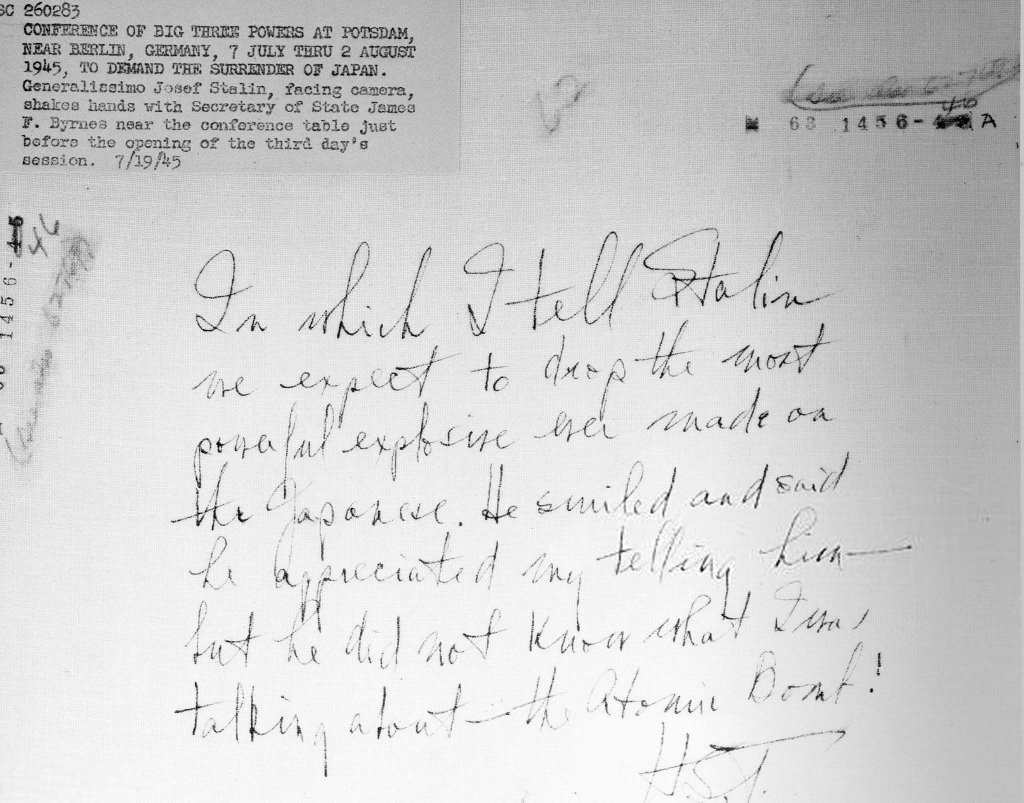 SC 260283
CONFERENCE OF BIG THREE POWERS AT POTSDAM,
NEAR BERLIN, GERMANY, 7 JULY THRU 2 AUGUST
1945, TO DEMAND THE SURRENDER OF JAPAN.
Generalissimo Josef Stalin, facing camera,
shakes hands with Secretary of State James
F. Byrnes near the conference table just
before the opening of the third day's
session. 7/19/45
63 1456-46 A
1456-
46
In which I tell Stalin
we expect to drop the most
powerful explosive ever made on
the Japanese. He smiled and said
he appreciated my telling him—
but he did not know what I was
talking about—the Atomic Bomb!
H.S.T.